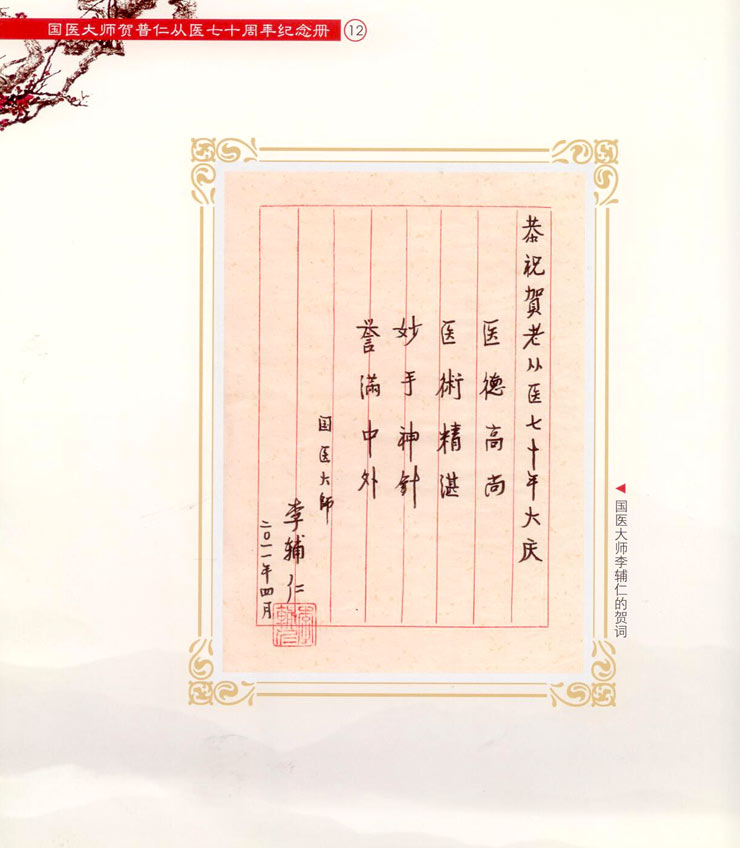 国医大师贺普仁从医七十周年纪念册 12
恭祝賀老从医七十年大庆
医德高尚
医術精湛
妙手神針
誉满中外
国医大师
李辅仁
二〇一一年四月
◀国医大师李辅仁的贺词